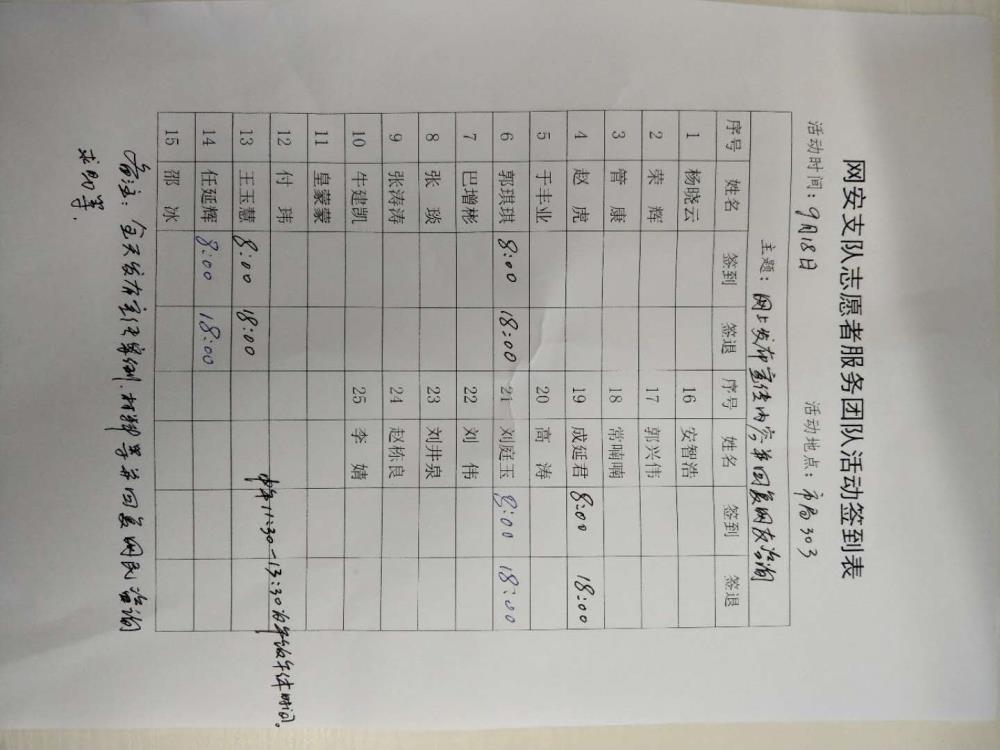 网安支队志愿者服务团队活动签到表
活动时间：9月18日 活动地点：市局303
主题：网上发布宣传内容并回复网友咨询
序号 姓名 签到 签退 序号 姓名 签到 签退
1 杨晓云 16 安智浩
2 荣辉 17 郭兴伟
3 管康 18 常喃喃
4 赵虎 19 成延君 8:00 18:00
5 于丰业 20 高涛
6 郭琪琪 8:00 18:00 21 刘庭玉 8:00 18:00
7 巴增彬 22 刘伟
8 张琰 23 刘井泉
9 张涛涛 24 赵栋良
10 牛建凯 25 李婧
11 皇蒙蒙
12 付玮
13 王玉慧 8:00 18:00
14 任延辉 8:00 18:00
15 邵冰
中午11:30-13:30为午饭午休时间。
备注：全天发布宣传案例、材料等并回复网民咨询
求助等.